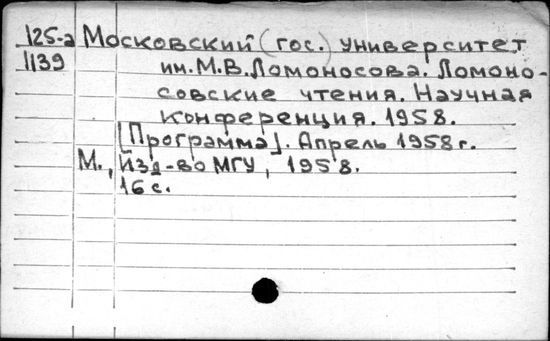 125-а Московский (гос.) университет
1139 им. М.В. Ломоносова. Ломоно-
совские чтения. Научная
конференция. 1958.
[Программа]. Апрель 1958 г.
М., Изд-во МГУ, 1958.
16 с.